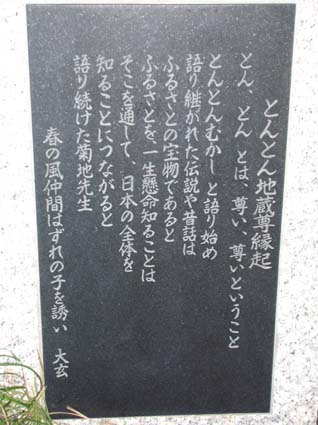 とんとん地蔵尊縁起
とん、とん とは、尊い、尊いということ
とんとんむかし と語り始め
語り継がれた伝説や昔話は
ふるさとの宝物であると
ふるさとを一生懸命知ることは
そこを通して、日本の全体を
知ることにつながると
語り続けた菊地先生
春の風仲間はずれの子を誘い 大玄